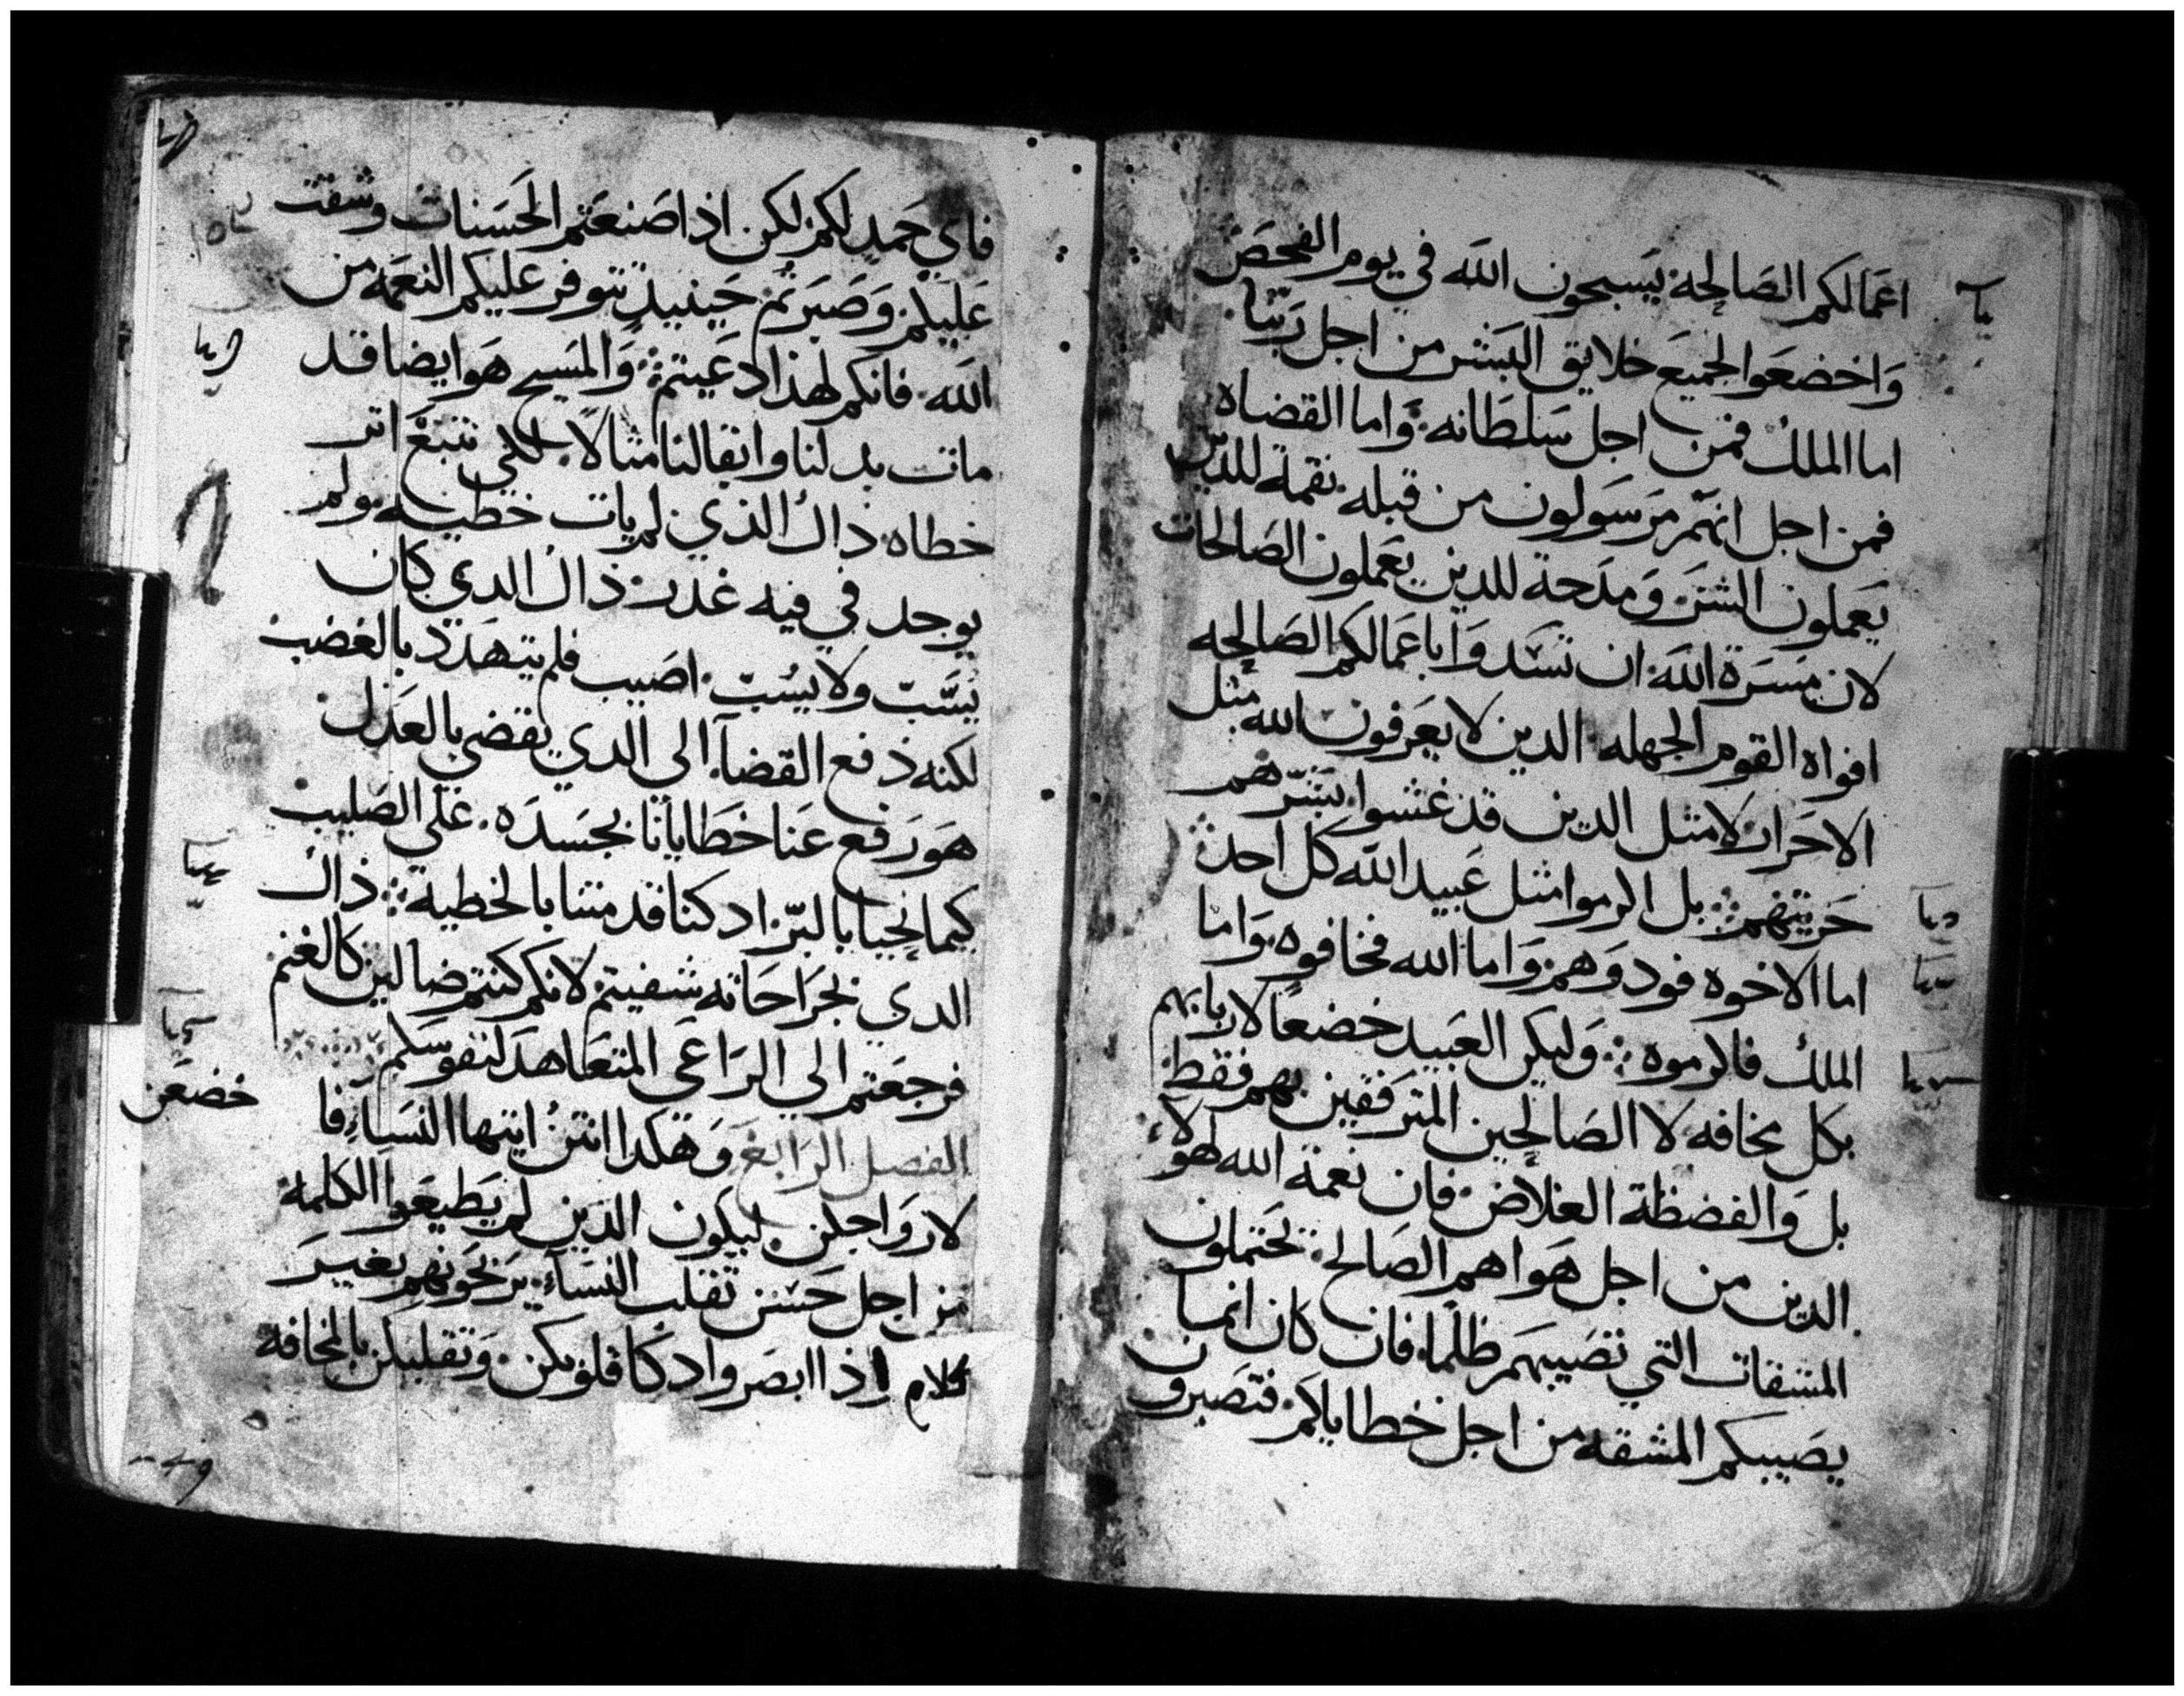 اعمالكم الصالحة يسبحون الله في يوم الفحص
واخضعوا لجميع خلايق البشر من اجل ربنا
اما الملك فمن اجل سلطانه واما القضاه
فمن اجل انهم مرسولون من قبله نقمة للدين
يعملون الشر ومدحة للدين يعملون الصالحات
لان مسرة الله ان تسدوا باعمالكم الصالحه
افواه القوم الجهله الدين لا يعرفون الله مثل
الاحرار لا مثل الدين قد غشوا بشرهم
حريتهم بل الرموا مثل عبيد الله كل احد
اما الاخوه فودوهم واما الله فخافوه واما
الملك فاكرموه وليكن العبيد خضعا لاربابهم
بكل مخافه لا الصالحين المترفقين بهم فقط
بل والفضظة الغلاض فان نعمة الله لهولاء
الدين من اجل هواهم الصالح تحتملون
المشقات التي تصيبهم ظلما فان كان انما
يصيبكم المشقه من اجل خطاياكم فتصبرون
فاي حمد لكم لكن اذا صنعتم الحسنات وشقت
عليكم وصبرتم حينيد تتوفر عليكم النعمه من
الله فانكم لهذا دعيتم والمسيح هو ايضا قد
مات بدلنا وابقا لنا مثالا لكي نتبع اثر
خطاه ذاك الذي لم يات خطيه ولم
يوجد في فيه غدر ذاك الدي كان
يسب ولا يسب اصيب فلم يتهدد بالغضب
لكنه دفع القضا الى الدي يقضي بالعدل
هو رفع عنا خطايانا بجسده على الصليب
كيما نحيا بالبر اد كنا قد متنا بالخطية ذاك
الدي بجراحاته شفيتم لانكم كنتم ضالين كالغنم
فرجعتم الى الراعي المتعاهد لنفوسكم
الفصل الرابع وهكدا انتن ايتها النساء فا
خضعن
لارواجكن ليكون الدين لم يطيعوا الكلمة
من اجل حسن تقلب النساء يربحونهم بغير
كلام اذا ابصروا دكا قلوبكن وتقلبكن بالمخافة